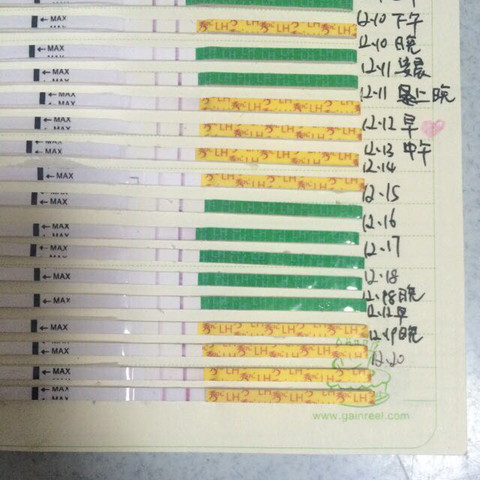 ← MAX LH 12.10 下午
← MAX 12.10 晚
← MAX 12.11 晨
← MAX LH 12.11 晚上
← MAX LH 12.12 早
← MAX LH 12.13 中午
← MAX LH 12.14
← MAX 12.15
← MAX 12.16
← MAX 12.17
← MAX 12.18
← MAX 12.18晚
← MAX LH 早
← MAX LH 12.19晚
← MAX LH 12.20
← MAX LH
www.gainreel.com